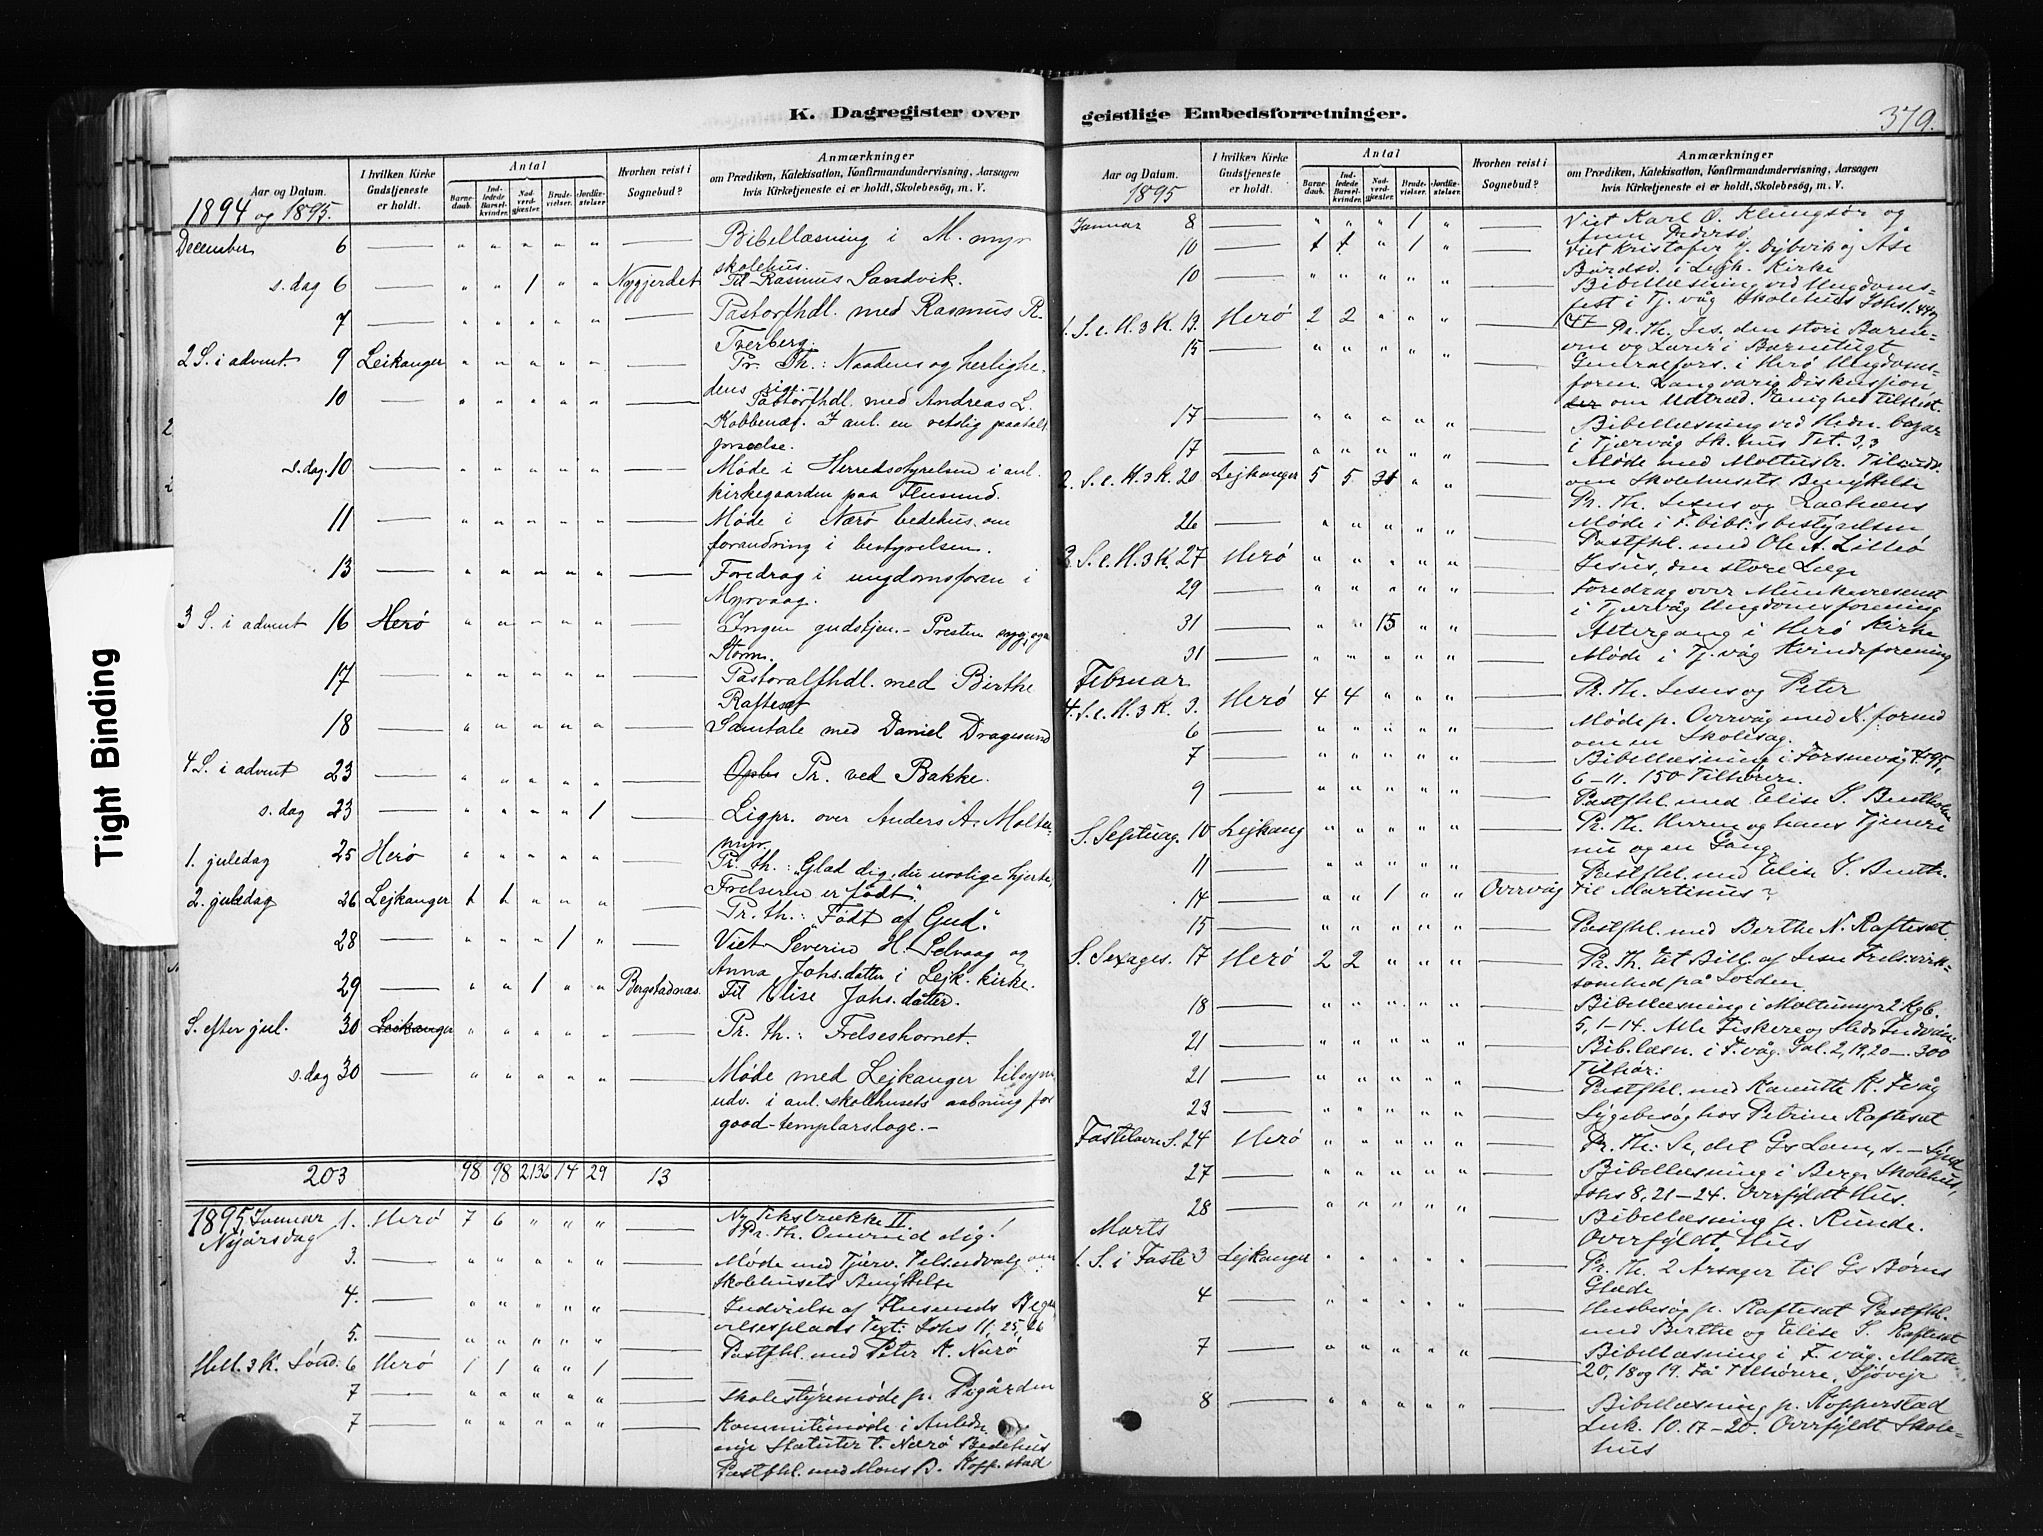 K. Dagregister over
Aar og Datum.
1894 og 1895.
I hvilken Kirke Gudstjeneste er holdt.
Antal
Barnedaab.
Indledede Barselkvinder.
Nadverdgjæster.
Brudevielser.
Jordfæstelser
Hvorhen reist i Sognebud?
Anmærkninger
om Prædiken, Katekisation, Konfirmandundervisning, Aarsagen
hvis Kirketjeneste ei er holdt, Skolebesøg, m. V.
December 6 — " " " " " — Bibellæsning i M. myr
skolehus.
s. dag 6 — " " 1 " " Nygjerdet Til Rasmus Sandvik.
7 — " " " " " — Pastorfhdl. med Rasmus R.
Tverberg.
2 S. i advent 9 Leikanger " " " " " — Pr. Th.: Naadens og herlighe-
dens rige.
10 — " " " " " — Pastorfhdl. med Andreas L.
Kobbenæs. I anl. en retslig paatalt
forseelse.
s. dag 10 — " " " " " — Møde i Herredsstyrelsen i anl.
kirkegaarden paa Flusund.
11 — " " " " " — Møde i Nærø bedehus om
forandring i bestyrelsen.
13 — " " " " " — Foredrag i ungdomsforen i
Myrvaag.
3 S. i advent 16 Herø " " " " " — Ingen gudstjen. – Presten syg, og
Storm.
17 — " " " " " — Pastoralfhdl. med Birthe
Raftesæt
18 — " " " " " — Samtale med Daniel Dragesund
4 S. i advent 23 — " " " " " — Pr. ved Bakke.
s. dag 23 — " " " " 1 — Ligpr. over Anders A. Molte-
myr.
1. juledag 25 Herø " " " " " — Pr. th.: Glæd dig, du urolige hjerte,
Frelseren er født".
2. juledag 26 Lejkanger 1 1 " " " — Pr. th.: "Født af Gud".
28 — " " " 1 " — Viet Severin H. Selvaag og
Anna Johs.datter i Lejk. kirke.
29 — " " 1 " " Bergstadnæs. Til Elise Johs.datter.
S. efter jul. 30 Leikanger " " " " " — Pr. th.: Frelseshornet.
s. dag 30 — " " " " " — Møde med Lejkanger tilsyns
udv. i anl. skolehusets aabning for
good-templarsloge. –
203 98 98 2136 14 29 13
1895 Januar 1. Herø 7 6 " " " — Ny Tekstrække II.
Nyårsdag Pr. th. Omvend dig!
3. — " " " " " — Møde med Tjørv. Tilsudvalg om
Skolehusets Benyttelse
4. — " " " " " — Indvielse af Flusunds Begra
velsesplads Text: Johs 11, 25, 26
5. — " " " " " — Pastfhl. med Peter A. Nærø
Hell. 3 K. Sønd. 6 Herø 1 1 " " 1
7 — " " " " " — Skolestyremøde p. Pigården
7 — " " " " " — Kommitemøde i Anledn.
nye Statuter t. Nærø Bedehus
Pastfhl. med Mons B. Kopp.stad
geistlige Embedsforretninger.
379.
Aar og Datum.
1895
I hvilken Kirke Gudstjeneste er holdt.
Antal
Barnedaab.
Indledede Barselkvinder.
Nadverdgjæster.
Brudevielser.
Jordfæstelser
Hvorhen reist i Sognebud?
Anmærkninger
om Prædiken, Katekisation, Konfirmandundervisning, Aarsagen
hvis Kirketjeneste ei er holdt, Skolebesøg, m. V.
Januar 8 — " " " 1 " — Viet Karl O. Klungsør og
Anne Pedersd.
10 — 1 1 " 1 " — Viet Kristofer J. Dybvik og Åse
Bårdsd. i Lejk. Kirke
10 — " " " " " — Bibellæsning ved Ungdoms-
fest i Tj. våg Skolehus Johs 1, 44-
47
1. S. e. H. 3 K. 13. Herø 2 2 " " " — Pr. Th. Jes. den store Barne-
ven og Lærer i Barnetugt
15 — " " " " " — Generalfors. i Herø Ungdoms-
foren. Langvarig Diskussion
om Udtræd. Enighed tilsidst.
17 — " " " " " — Bibellæsning ved Hedn. bazar
i Tjervåg Sk. hus Tit. 3, 3
17 — " " " " " — Møde med Moltustr. Tilsudv.
om Skolehusets Benyttelse
2. S. e. H. 3 K. 20 Lejkanger 5 5 31 " " — Pr. Th. Jesus og Zachæus
26 — " " " " " — Møde i F. bibl.s bestyrelsen
Pastfhl. med Ole A. Lillerø
3. S. e. H. 3 K. 27 Herø " " " " " — Jesus, den store Læge
29 — " " " " " — Foredrag over Munkevæsenet
i Tjervåg Ungdomsforening
31 — " " 15 " " — Altergang i Herø Kirke
31 — " " " " " — Møde i Tj. våg Kvindeforening
Februar
4. S. e. H. 3 K. 3. Herø 4 4 " " " — Pr. Th. Jesus og Peter
6 — " " " " " — Møde p. Overvåg med N. formd
om en Skolesag.
7 — " " " " " — Bibellæsning i Torsnevåg
6–11. 150 Tilhørere.
9 — " " " " " — Pastfhl. med Elise S.
S. Septuag. 10 Lejkang " " " " " — Pr. Th. Herren og hans Tjenere
nu og en Gang
11 — " " " " " — Pastfhl. med Elise S.
14 — " " 1 " " Overvåg til Martinus?
15 — " " " " " — Pastfhl. med Berthe N. Raftesæt.
S. Sexages. 17 Herø 2 2 " " " — Pr. Th. Et Bill. af Jesu Frels.virk-
somhed på Jorden
18 — " " " " " — Bibellæsning i Moltumyr 2 Kgb.
5, 1–14. Alle Fiskere og
21 — " " " " " — Bib.læsn. i F. våg. Gal. 2, 19, 20 — 300
Tilhør:
21 — " " " " " — Pastfhl. med Kanutte K. F. våg
23 — " " " " " — Sygebesøg hos Petrine Raftesæt
Fastelavn S. 24 Herø " " " " " — Pr. Th: Se, det Gs Lam, s. –
27 — " " " " " — Bibellæsning i Berge Skolehus,
Johs 8, 21–24. Overfyldt Hus.
28 — " " " " " — Bibellæsning p. Runde.
Overfyldt Hus
Marts
1. S. i Faste 3 Lejkanger " " " " " — Pr. Th. 2 Årsager til Gs Børns
Glæde
4 — " " " " " — Husbesøg p. Raftesæt Pastfhl.
med Berthe og Elise S. Raftesæt
7 — " " " " " — Bibellæsning i F. våg. Matth.
20, 18 og 19. Få Tilhørere, Sjøvejr
8 — " " " " " — Bibellæsning p. Kopperstad
Luk. 10. 17–20. Overfyldt Skole-
hus
Tight Binding